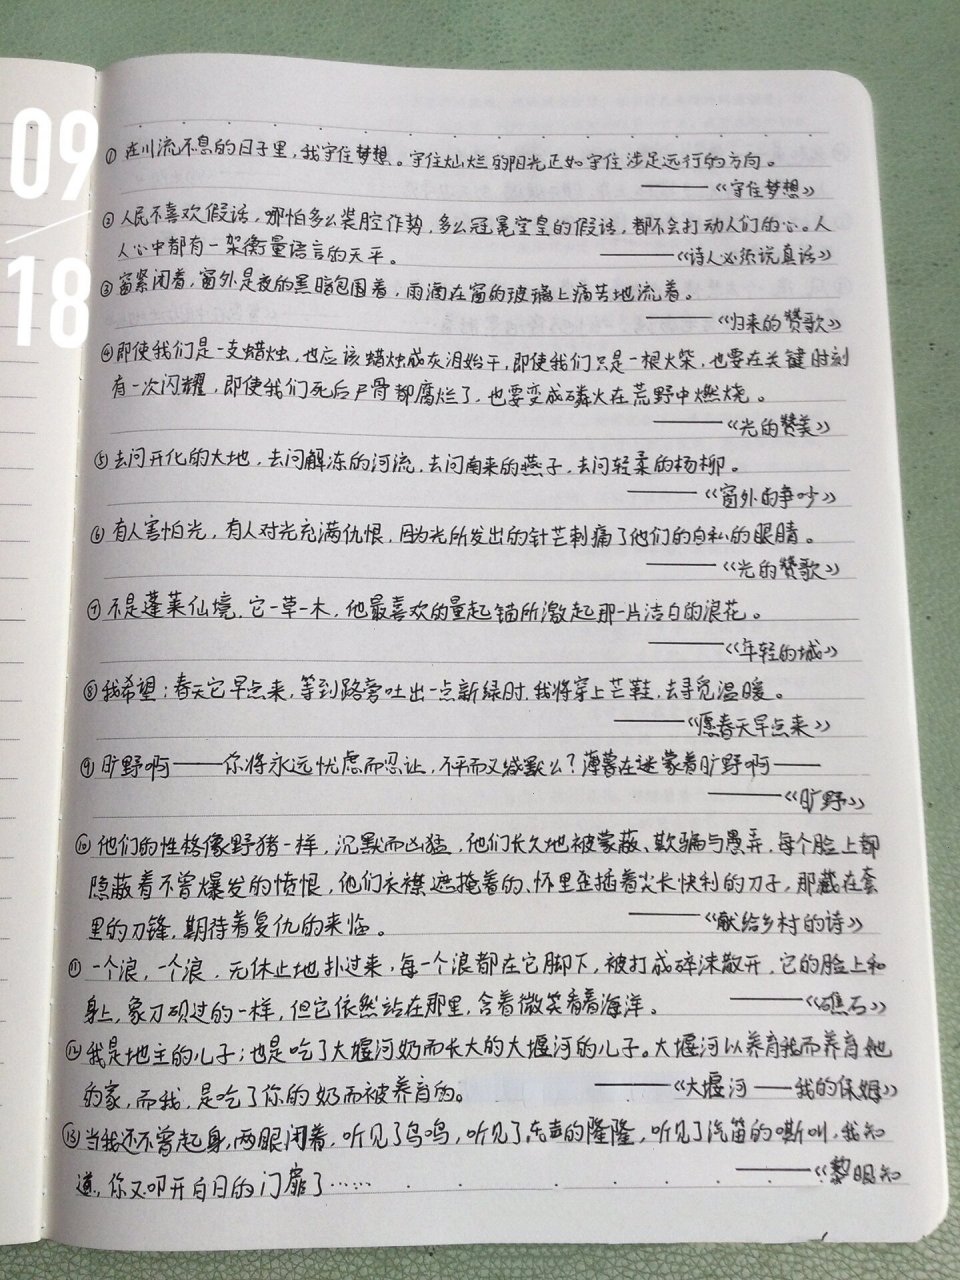 09
18
① 在川流不息的日子里,我守住梦想。守住灿烂的阳光正如守住涉足远行的方向。
——《守住梦想》
② 人民不喜欢假话,哪怕多么装腔作势,多么冠冕堂皇的假话,都不会打动人们的心。人
人心中都有一架衡量语言的天平。 ——《诗人必须说真话》
③ 窗紧闭着,窗外是夜的黑暗包围着,雨滴在窗的玻璃上痛苦地流着。
——《归来的赞歌》
④ 即使我们是一支蜡烛,也应该蜡烛成灰泪始干,即使我们只是一根火柴,也要在关键时刻
有一次闪耀,即使我们死后尸骨都腐烂了,也要变成磷火在荒野中燃烧。
——《光的赞美》
⑤ 去问开化的大地,去问解冻的河流,去问南来的燕子,去问轻柔的杨柳。
——《窗外的争吵》
⑥ 有人害怕光,有人对光充满仇恨,因为光所发出的针芒刺痛了他们的自私的眼睛。
——《光的赞歌》
⑦ 不是蓬莱仙境,它一草一木,他最喜欢的量起锚所激起那一片洁白的浪花。
——《年轻的城》
⑧ 我希望:春天它早点来,等到路旁吐出一点新绿时,我将穿上芒鞋,去寻觅温暖。
——《愿春天早点来》
⑨ 旷野啊——你将永远忧虑而忍让,不平而又缄默么?薄雾在迷蒙着旷野啊——
——《旷野》
⑩ 他们的性格像野猪一样,沉默而凶猛,他们长久地被蒙蔽、欺骗与愚弄,每个脸上都
隐蔽着不曾爆发的愤恨,他们衣襟遮掩着的、怀里歪插着尖长快利的刀子,那藏在套
里的刀锋,期待着复仇的来临。 ——《献给乡村的诗》
⑪ 一个浪,一个浪,无休止地扑过来,每一个浪都在它脚下,被打成碎沫散开,它的脸上和
身上,象刀砍过的一样,但它依然站在那里,含着微笑看着海洋。 ——《礁石》
⑫ 我是地主的儿子;也是吃了大堰河奶而长大的大堰河的儿子。大堰河以养育我而养育她
的家,而我,是吃了你的奶而被养育的。 ——《大堰河——我的保姆》
⑬ 当我还不曾起身,两眼闭着,听见了鸟鸣,听见了车声的隆隆,听见了汽笛的嘶叫,我知
道,你又叩开白日的门扉了…… ——《黎明